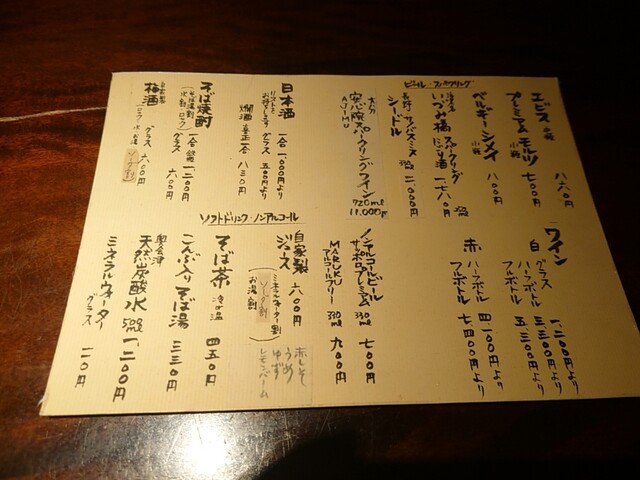 ビール・スパークリング
エビス 中瓶 八八〇円
プレミアムモルツ 小瓶 七〇〇円
ベルギーシメイ 小瓶 八〇〇円
いづみ橋 スパークリング にごり酒
一七八〇円
大分
安心院スパークリングワイン
AJIMU
720ml
11,000円
長野・サンパスミヌ
シードル
二、〇〇〇円
日本酒 一合 一、〇〇〇円より
リストを お持ちします グラス 五〇〇円より
燗酒 一合 八三〇円
そば焼酎 一合 一、二〇〇円
(そば湯割 水割 ロック) グラス 六〇〇円
自家製
梅酒 グラス 六〇〇円
(ロック 水 お湯 ソーダ割)
ワイン
白 グラス 一、二〇〇円より
ハーフボトル 三、三〇〇円より
フルボトル 五、五〇〇円より
赤 ハーフボトル 四、一〇〇円より
フルボトル 七、四〇〇円より
ソフトドリンク・ノンアルコール
ノンアルコールビール
サッポロプレミアム 330ml 七〇〇円
アルコールフリー 330ml 九〇〇円
自家製
ジュース 六〇〇円
(ミネラルウォーター割 ソーダ割 お湯割)
赤しそ
うめ
ゆず
レモンバーム
そば茶 冷・温 四五〇円
こんぶ入りそば湯 三三〇円
奥会津
天然炭酸水 500ml 一、二〇〇円
ミネラルウォーター グラス 一一〇円